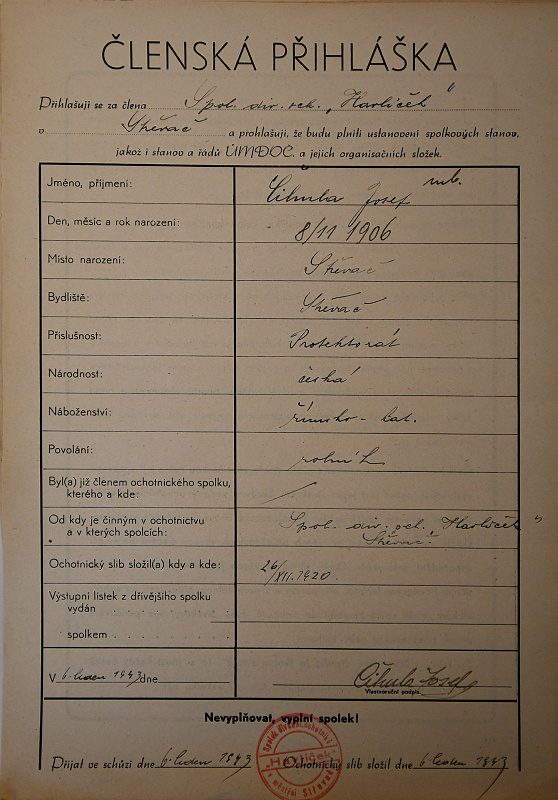 ČLENSKÁ PŘIHLÁŠKA
Přihlašuji se za člena Spol. div. och. „Havlíček“
v Střevač a prohlašuji, že budu plniti ustanovení spolkových stanov,
jakož i stanov a řádů ÚMDOČ. a jejich organisačních složek.
Jméno, příjmení: Čihula Josef
Den, měsíc a rok narození: 8/11 1906
Místo narození: Střevač
Bydliště: Střevač
Příslušnost: Protektorát
Národnost: česká
Náboženství: římsko-kat.
Povolání: rolník
Byl(a) již členem ochotnického spolku,
kterého a kde:
Od kdy je činným v ochotnictvu Spol. div. och. Havlíček“
a v kterých spolcích: Střevač
Ochotnický slib složil(a) kdy a kde: 26/XII. 1920.
Výstupní lístek z dřívějšího spolku
vydán . . . . . . . . . .
spolkem . . . . . . . . .
V 6. leden 1943 dne Čihula Josef
Vlastnoruční podpis.
Nevyplňovat, vyplní spolek!
Přijal ve schůzi dne 6. leden 1943 Ochotnický slib složil dne 6. leden 1943
"Havlíček"